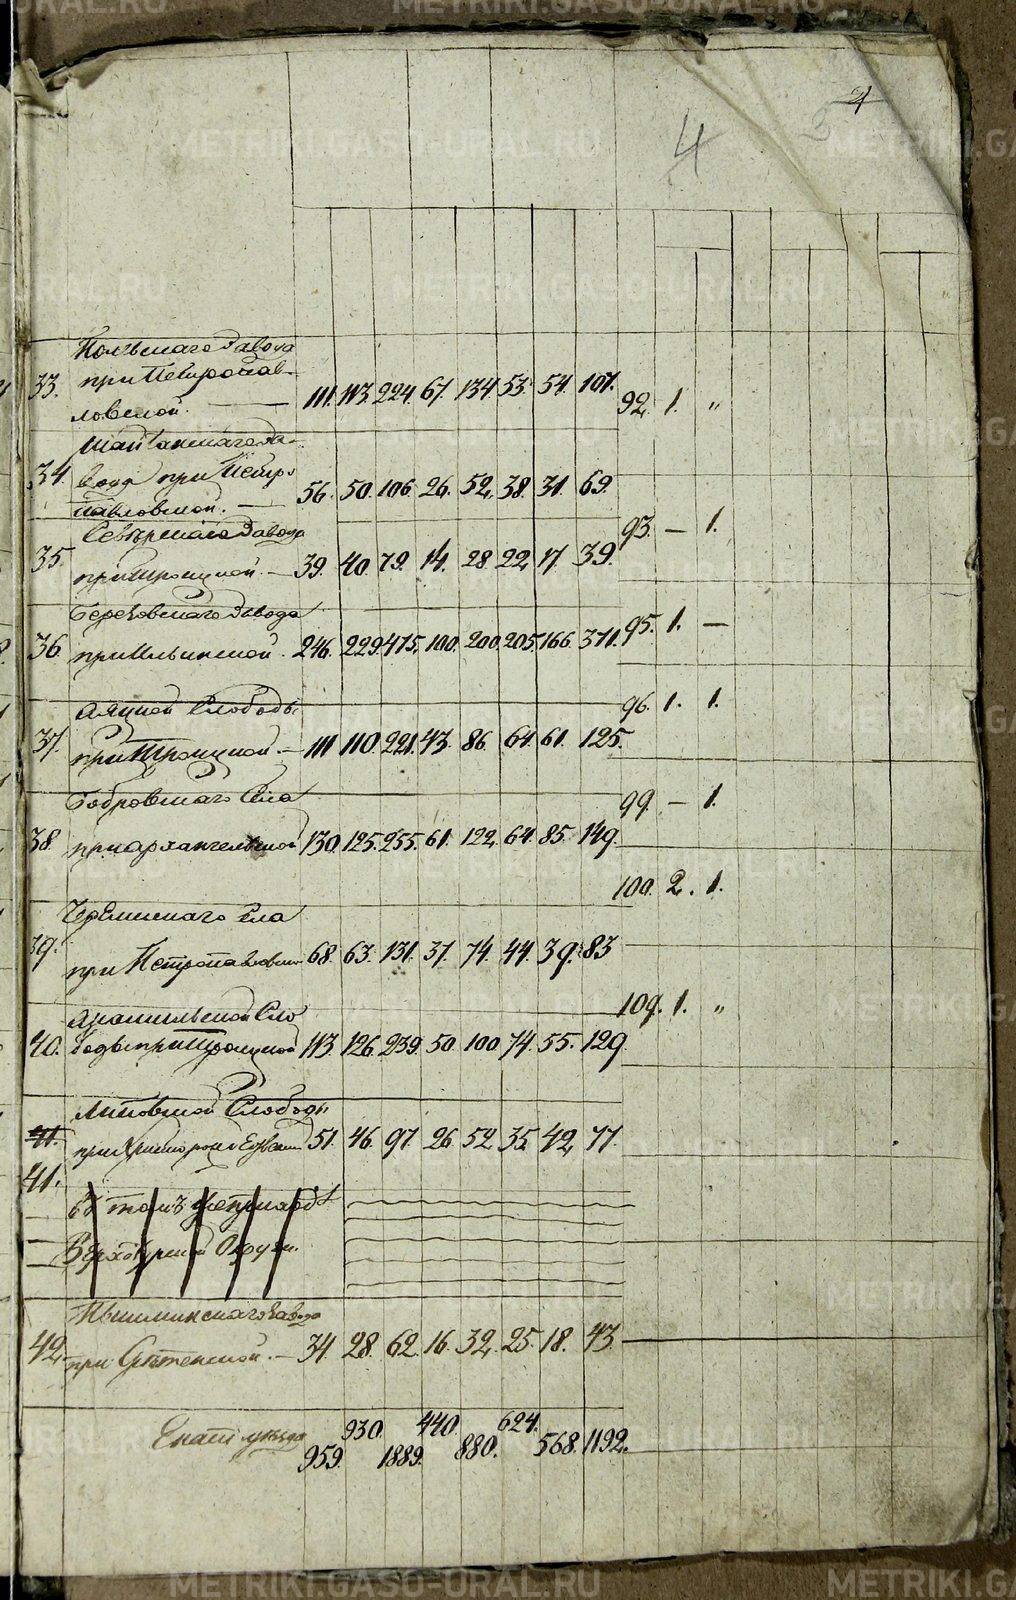 4
33.
Полевскаго Завода
при Петропав-
ловской.
111. 113. 224. 67. 134. 53. 54. 107.
92. 1. „
34.
Шайтанскаго за-
вода при Петро
павловской.
56. 50. 106. 26. 52. 38. 31. 69.
93. — 1.
35.
Северскаго Завода
при Троицкой. —
39. 40. 79. 14. 28. 22. 17. 39.
36.
Березовскаго Завода
при Ильинской.
246. 229. 475. 100. 200. 205. 166. 371.
95. 1. —
96. 1. 1.
37.
Аяцкой Слободы
при Троицкой. —
111 110. 221. 43. 86. 64. 61. 125.
99. — 1.
38.
Бобровскаго Села
при Архангельской
130. 125. 255. 61. 122. 64. 85. 149.
100. 2. 1.
39.
Чермискаго села
при Петропавловск
68. 63. 131. 37. 74. 44. 39. 83
109. 1. „
40.
Арамильской Сло
боды при Троицкой
113. 126. 239. 50. 100. 74. 55. 129.
41.
Липовской Слободы
51. 46. 97. 26. 52. 35. 42. 77.
41.
Верхотурской Округи.
42.
Пышминскаго Завода
при Сретенской. —
34. 28. 62. 16. 32. 25. 18. 43.
Екат уезда
959. 930. 1889. 440. 880. 624. 568. 1192.
METRIKI.GASO-URAL.RU